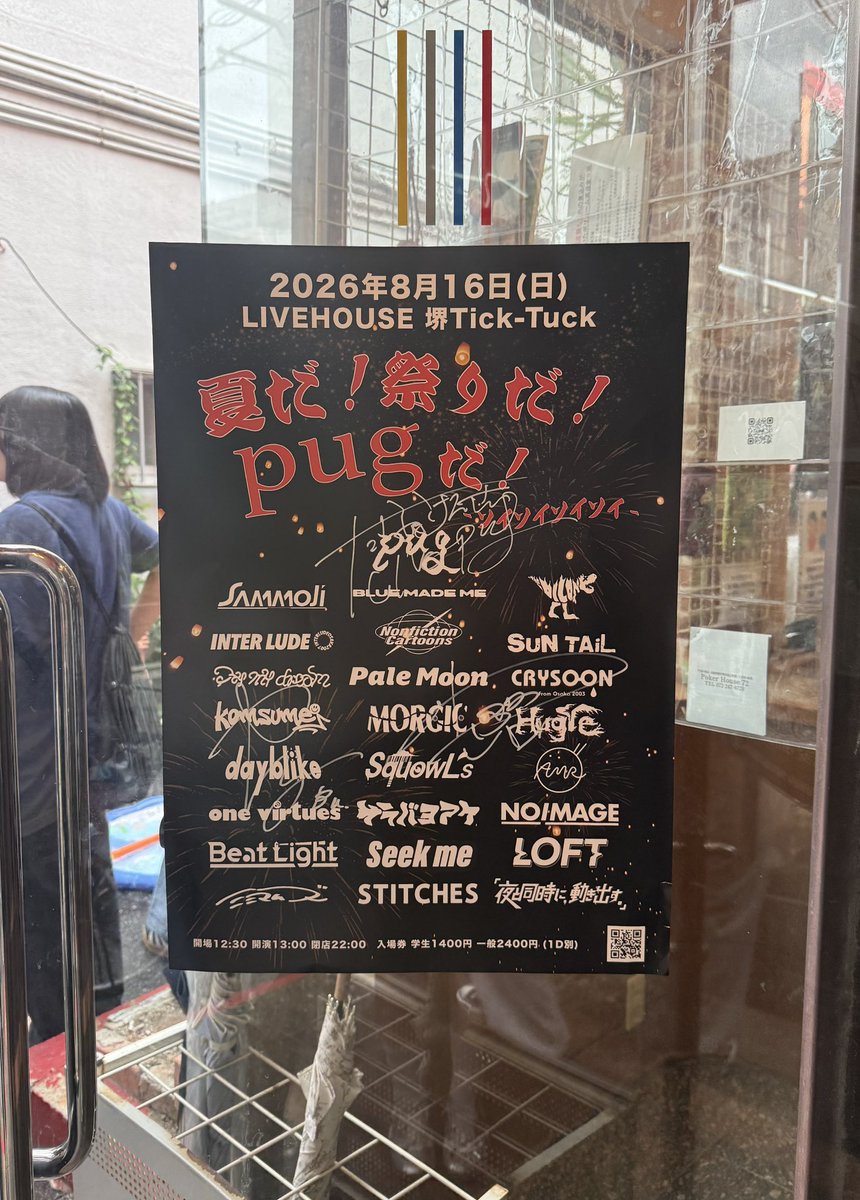 2026年8月16日(日)
LIVEHOUSE 堺Tick-Tuck
夏だ！祭りだ！
pugだ！
-ソイソイソイソイ-
pug
SAMMOJi BLUE/MADE ME
INTER LUDE Nonfiction Cartoons SUN TAiL
Pale Moon CRYSOON
from Osaka 2003
komsume MORC!C Hugle
dayblike SquowL's
one virtues ケラバヨアケ NO/MAGE
Beat Light Seek me LOFT
STITCHES 「夜と同時に、動き出す。」
開場12:30 開演13:00 閉店22:00 入場券 学生1400円 一般2400円 (1D別)
Poker House